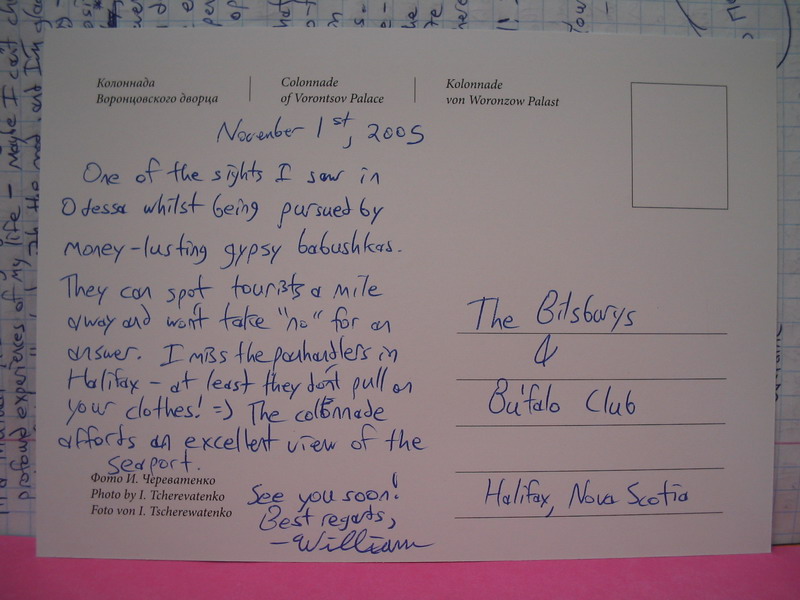 Колоннада
Воронцовского дворца
Colonnade
of Vorontsov Palace
Kolonnade
von Woronzow Palast
November 1st, 2005
One of the sights I saw in
Odessa whilst being pursued by
money-lusting gypsy babushkas.
They can spot tourists a mile
away and won't take "no" for an
answer. I miss the panhandlers in
Halifax - at least they don't pull on
your clothes! =) The colonnade
affords an excellent view of the
seaport.
See you soon!
Best regards,
-William
Фото И. Череватенко
Photo by I. Tcherevatenko
Foto von I. Tscherewatenko
The Bilsbarys
&
Búfalo Club
Halifax, Nova Scotia
profound experiences of my life - maybe I can't